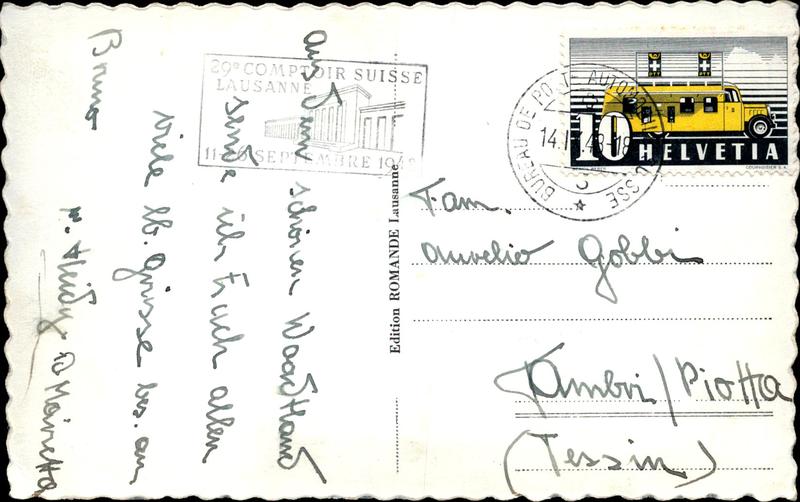 29e COMPTOIR SUISSE
LAUSANNE
11-26 SEPTEMBRE 1948
BUREAU DE POSTE AUTOMOBILE SUISSE
14.IX.48-18
10 HELVETIA
COURVOISIER S.A.
Edition ROMANDE Lausanne
Fam.
Aurelio Gobbi
Ambri/Piotta
(Tessin)
aus dem schönen Waadtland
sende ich Euch allen
viele lb. Grüsse bes. an
Bruno
u. Heidy
Marietta